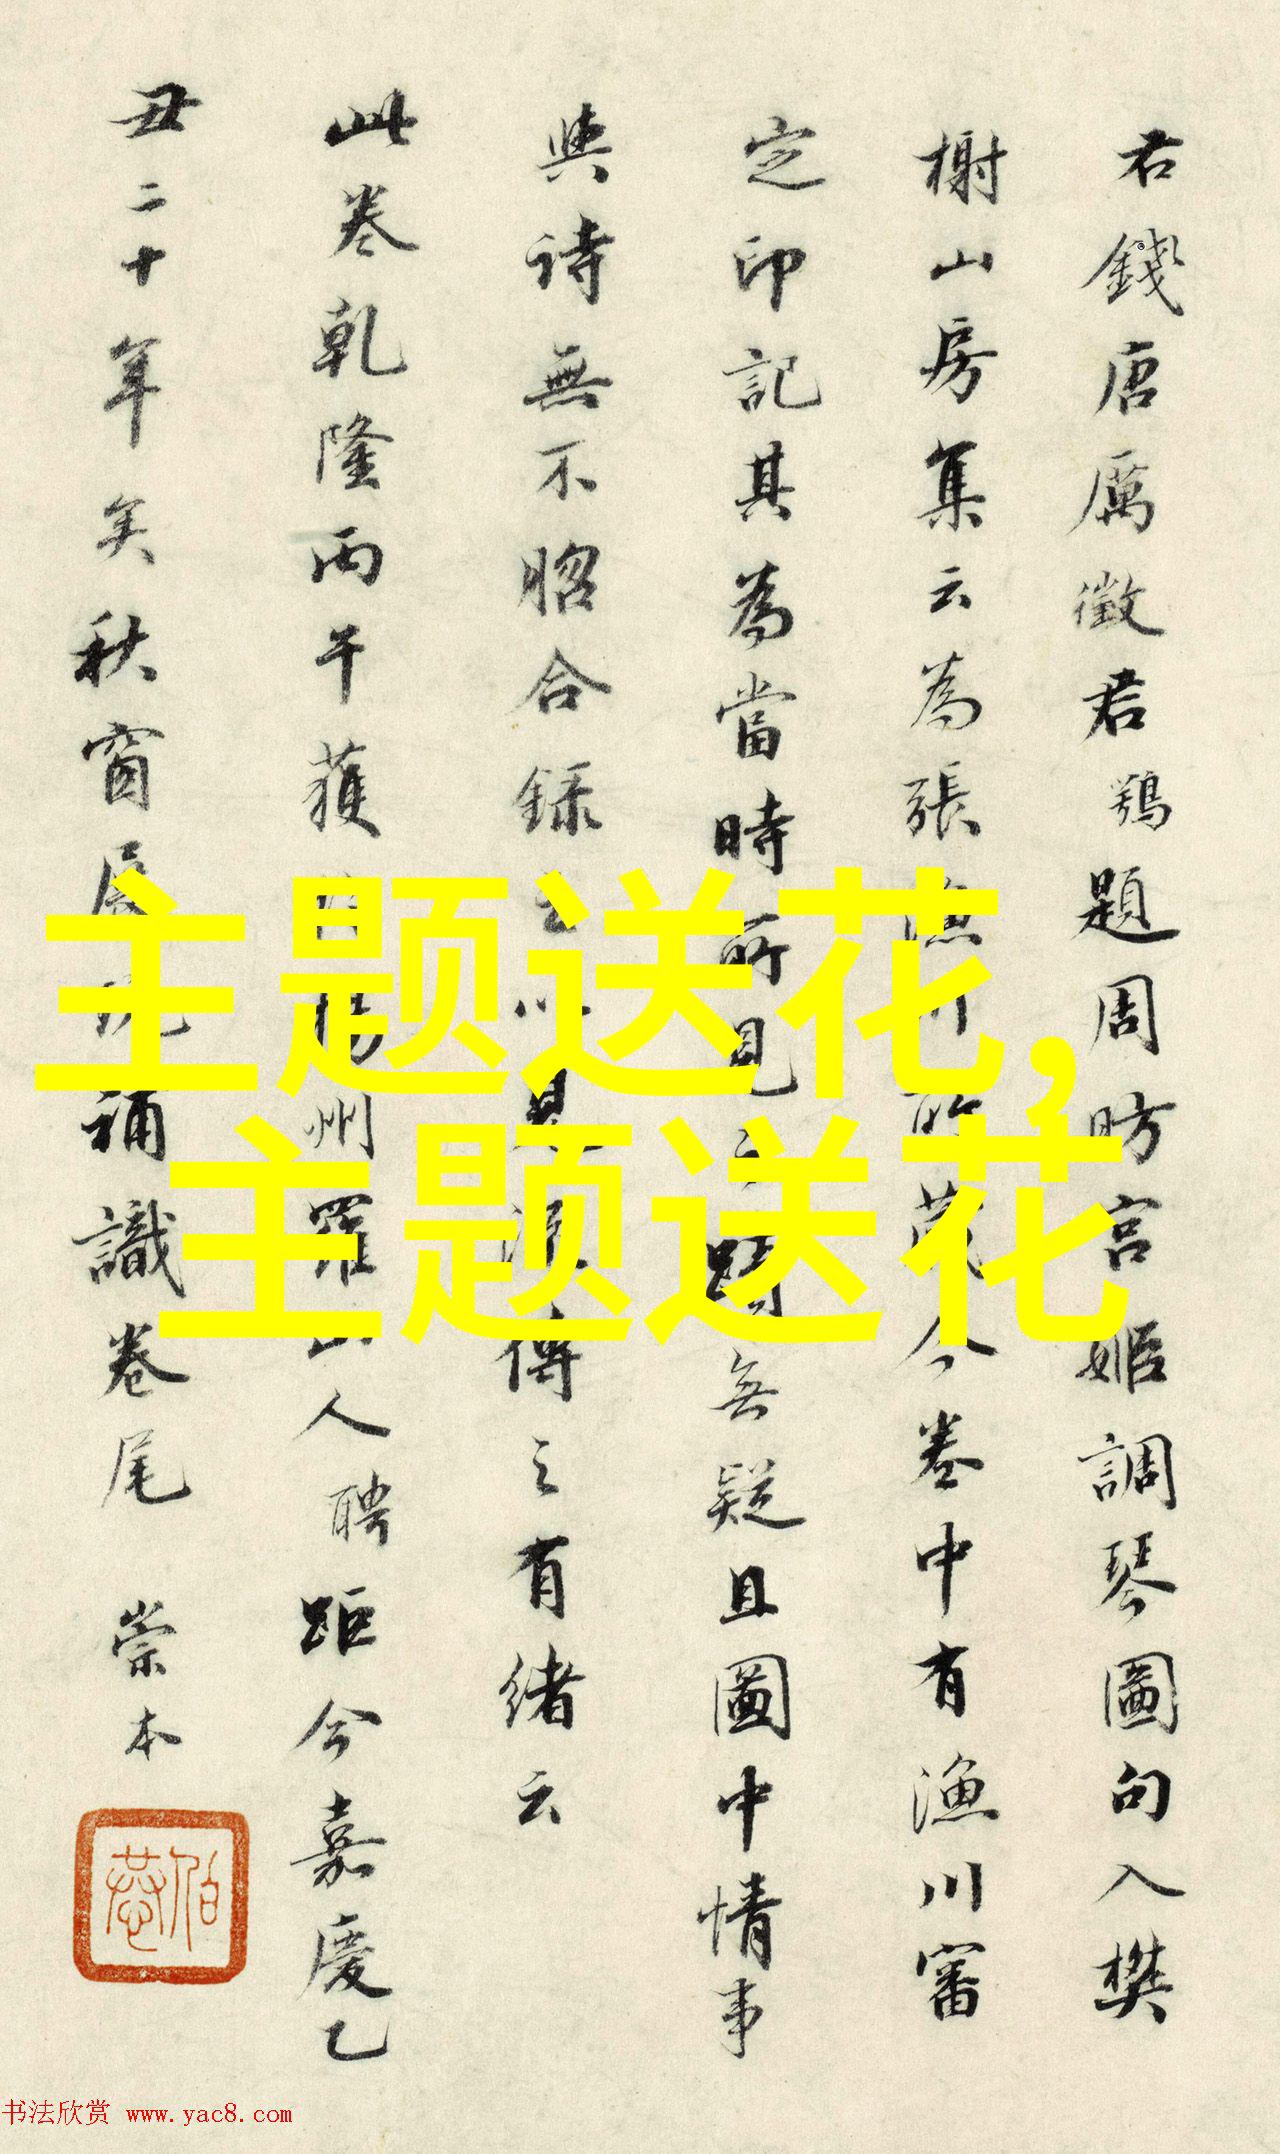 君錢唐厲徵君鶚題周昉宮姬調琴圖句入樊
榭山房集云為張漁川所藏今卷中有漁川審
定印記其為當時所見之蹟無疑且圖中情事
與詩無不脗合錄之以見源傳之有緒云
此卷乾隆丙午獲揚州羅山人聘距今嘉慶乙
丑二十年矣秋窗展玩補識卷尾 崇本
主题送花,
主题送花
书法欣赏 www.yac8.com